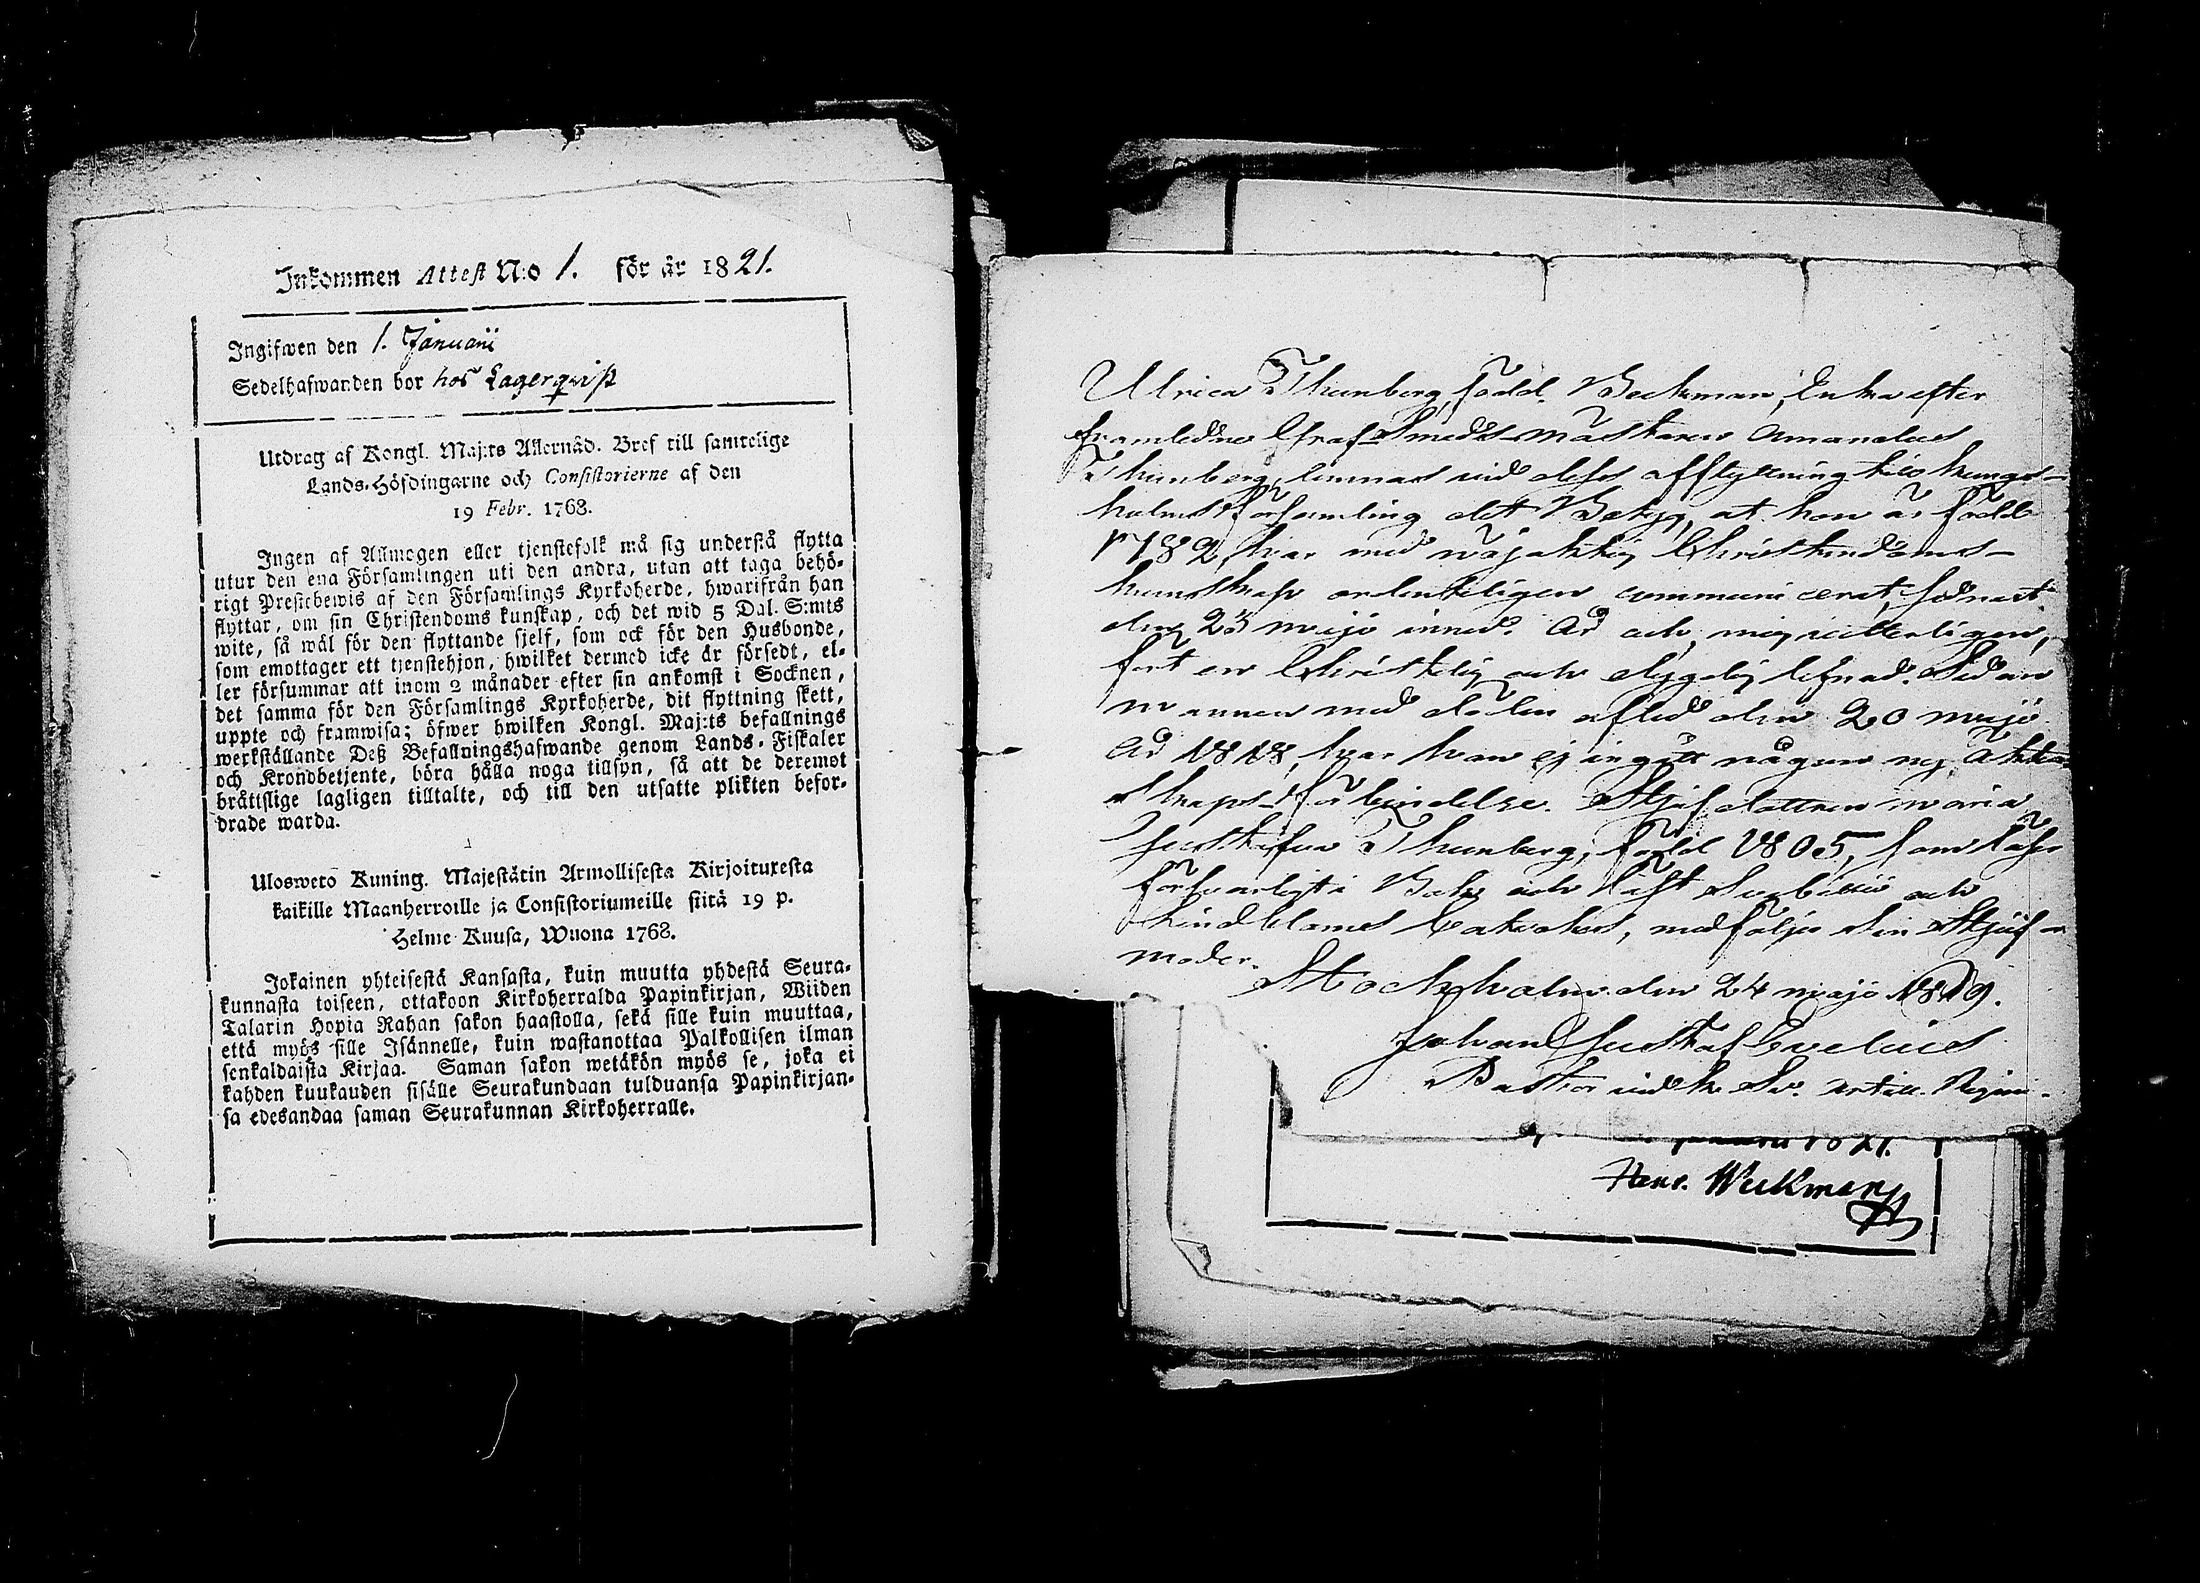 Inkommen Attest N:o 1. för år 1821.
Ingifwen den 1. Januarii
Sedelhafwanden bor hos Lagerqwist
Utdrag af Kongl. Maj:ts Allernåd. Bref till samtelige
Lands-Höfdingarne och Consistorierne af den
19 Febr. 1768.
Ingen af Allmogen eller tjenstefolk må sig understå flytta
utur den ena Församlingen uti den andra, utan att taga behö-
rigt Prestebewis af den Församlings Kyrkoherde, hwarifrån han
flyttar, om sin Christendoms kunskap, och det wid 5 Dal. S:mts
wite, så wäl för den flyttande sjelf, som ock för den Husbonde,
som emottager ett tjenstehjon, hwilket dermed icke är försedt, el-
ler försummar att inom 2 månader efter sin ankomst i Socknen,
det samma för den Församlings Kyrkoherde, dit flyttning skett,
uppte och framwisa; öfwer hwilken Kongl. Maj:ts befallnings
werkställande Deß Befallningshafwande genom Lands-Fiskaler
och Kronobetjente, böra hålla noga tillsyn, så att de deremot
bråttslige lagligen tilltalte, och till den utsatte plikten befor-
drade warda.
Ulosweto Kuning. Majestätin Armollisesta Kirjoituxesta
kaikille Maanherroille ja Consistoriumeille siitä 19 p.
Helme Kuusa, Wuona 1768.
Jokainen yhteisestä Kansasta, kuin muutta yhdestä Seura-
kunnasta toiseen, ottakoon Kirkoherralda Papinkirjan, Wiiden
Talarin Hopia Rahan sakon haastolla, sekä sille kuin muuttaa,
että myös sille Isännelle, kuin wastanottaa Palkollisen ilman
senkaldaista Kirjaa. Saman sakon wetäkön myös se, joka ei
kahden kuukauden sisälle Seurakundaan tulduansa Papinkirjan-
sa edesandaa saman Seurakunnan Kirkoherralle.
Ulrica Thunberg, född Beckman, Enka efter
framledne Grof-Smeds-mästaren Amandus
Thunberg, lemnas vid dess afflyttning till Kungs-
holms Församling det Betyg, at hon är född
1782, har med nöjaktig Christendoms-
kunskap ordenteligen communicerat, sednast
den 23 maji innev. År och, mig vitterligen,
fört en Christelig och dygdig lefnad. Sedan
mannen med döden afled den 20 maji
år 1818, har hon ej ingått någon ny Ächta-
skaps-förbindelse. Stjufdottren Maria
Gustafva Thunberg, född 1805, som läser
försvarligt i Bok och läst Svebilii och
Lindbloms Cateches, medföljer sin Stjuf-
moder.
Stockholm den 24 maji 1819.
Johan Gustaf
Pastor vid K. Sv. Artill. Regim.
1821.
Henr. Weckman